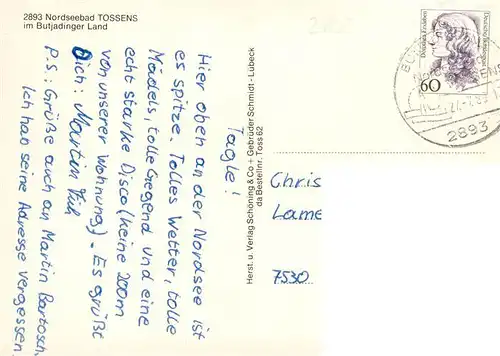 2893 Nordseebad TOSSENS
im Butjadinger Land
Tagle!
Hier oben an der Nordsee ist
es spitze. Tolles Wetter, tolle
Mädels, tolle Gegend und eine
echt starke Disco (keine 200m
von unserer Wohnung). Es grüßt
Dich: Martin
P.S.: Grüße auch an Martin Bartosch.
Ich hab seine Adresse vergessen.
Herst. u. Verlag Schöning & Co + Gebrüder Schmidt - Lübeck
da Bestellnr. Toss 62
60
Deutsche Bundespost
2893
Chris
Lame
7530